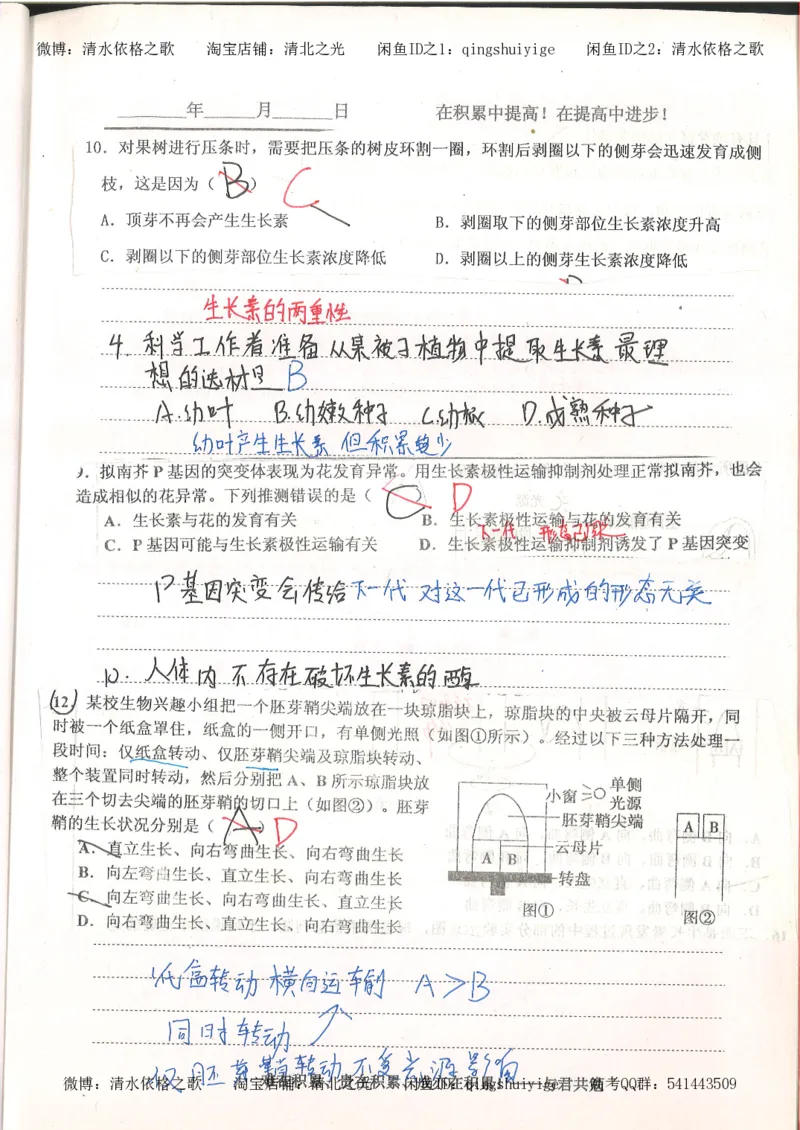 微博：清水依格之歌　　淘宝店铺：清北之光　　闲鱼ID之1：qingshuiyige　　闲鱼ID之2：清水依格之歌
______年____月____日　　在积累中提高！在提高中进步！
10．对果树进行压条时，需要把压条的树皮环割一圈，环割后剥圈以下的侧芽会迅速发育成侧
枝，这是因为（ B ） C
A．顶芽不再会产生生长素　　B．剥圈取下的侧芽部位生长素浓度升高
C．剥圈以下的侧芽部位生长素浓度降低　　D．剥圈以上的侧芽生长素浓度降低
生长素的两重性
4. 科学工作者准备从果被子植物中提取生长素 最理
想的选材是 B
A.幼叶　B.幼嫩种子　C.幼根　D.成熟种子
幼叶产生生长素 但积累较少
9．拟南芥 P 基因的突变体表现为花发育异常。用生长素极性运输抑制剂处理正常拟南芥，也会
造成相似的花异常。下列推测错误的是（ C ） D
A．生长素与花的发育有关　　B．生长素极性运输与花的发育有关
下一代
C．P 基因可能与生长素极性运输有关　　D．生长素极性运输抑制剂诱发了 P 基因突变
P基因突变会传给下一代 对这一代已形成的形态无关
10. 人体内不存在破坏生长素的酶
12）某校生物兴趣小组把一个胚芽鞘尖端放在一块琼脂块上，琼脂块的中央被云母片隔开，同
时被一个纸盒罩住，纸盒的一侧开口，有单侧光照（如图①所示）。经过以下三种方法处理一
段时间：仅纸盒转动、仅胚芽鞘尖端及琼脂块转动、
整个装置同时转动，然后分别把 A、B 所示琼脂块放
在三个切去尖端的胚芽鞘的切口上（如图②）。胚芽
鞘的生长状况分别是（ A ） D
A．直立生长、向右弯曲生长、向右弯曲生长
B．向左弯曲生长、直立生长、向右弯曲生长
C．向左弯曲生长、向右弯曲生长、直立生长
D．向右弯曲生长、直立生长、向右弯曲生长
小窗
单侧
光源
胚芽鞘尖端
云母片
A B
转盘
图①
A B
图②
纸盒转动 横向运输 A＞B
同时转动
仅胚芽鞘转动不受光源影响
微博：清水依格之歌　　淘宝店铺：清北之光　　闲鱼ID之1：qingshuiyige　　勉考QQ群：541443509